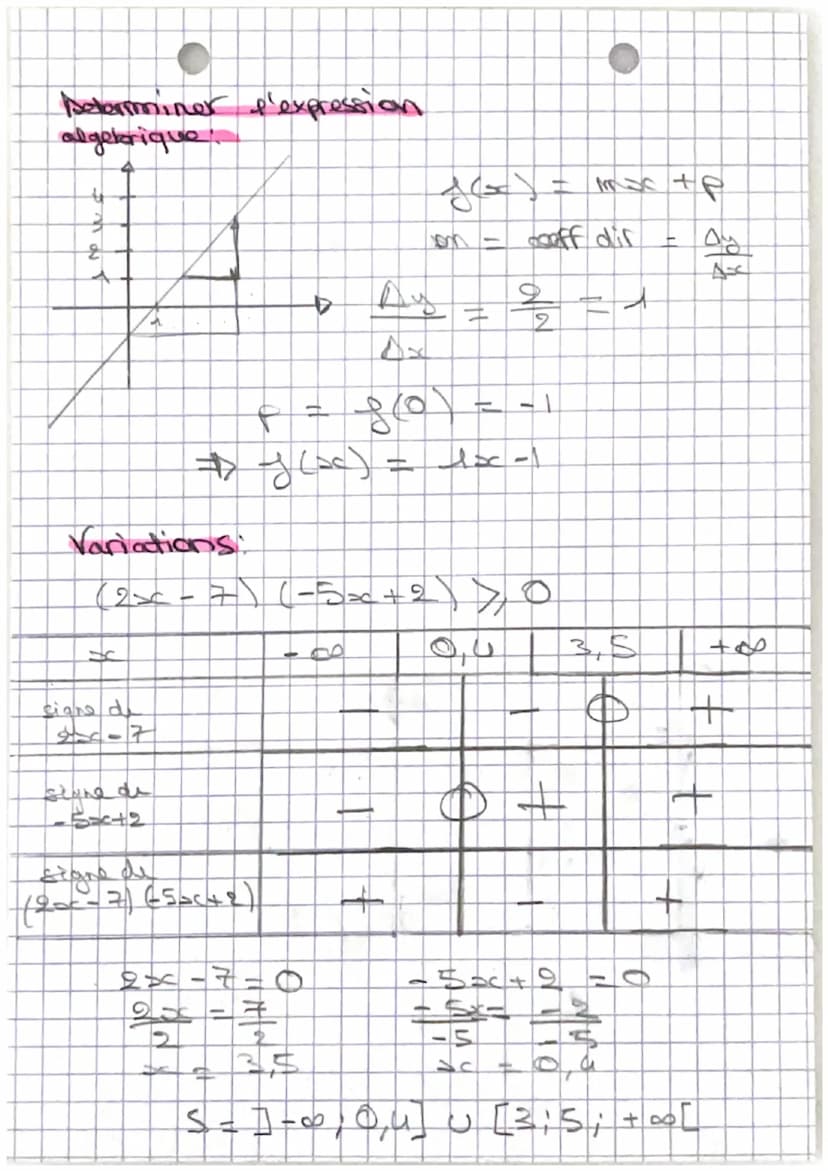 Determiner l'expression
algebrique:
4
3
2
1
1
f(x) = mx + p
m = coeff dir = Δy/Δx
Δy/Δx = 2/2 = 1
p = f(0) = -1
⇒ f(x) = 1x - 1
Variations:
(2x - 7) (-5x + 2) ⩾ 0
x | -∞ | 0,4 | 3,5 | +∞
signe de
2x - 7
− − 0 +
signe de
-5x+2
− 0 + +
signe de
(2x - 7) (-5x+2)
+ − +
2x - 7 = 0
2x/2 = 7/2
x = 3,5
-5x + 2 = 0
-5x/-5 = -2/-5
x = 0,4
S = ]-∞ ; 0,4] ∪ [3;5; +∞[